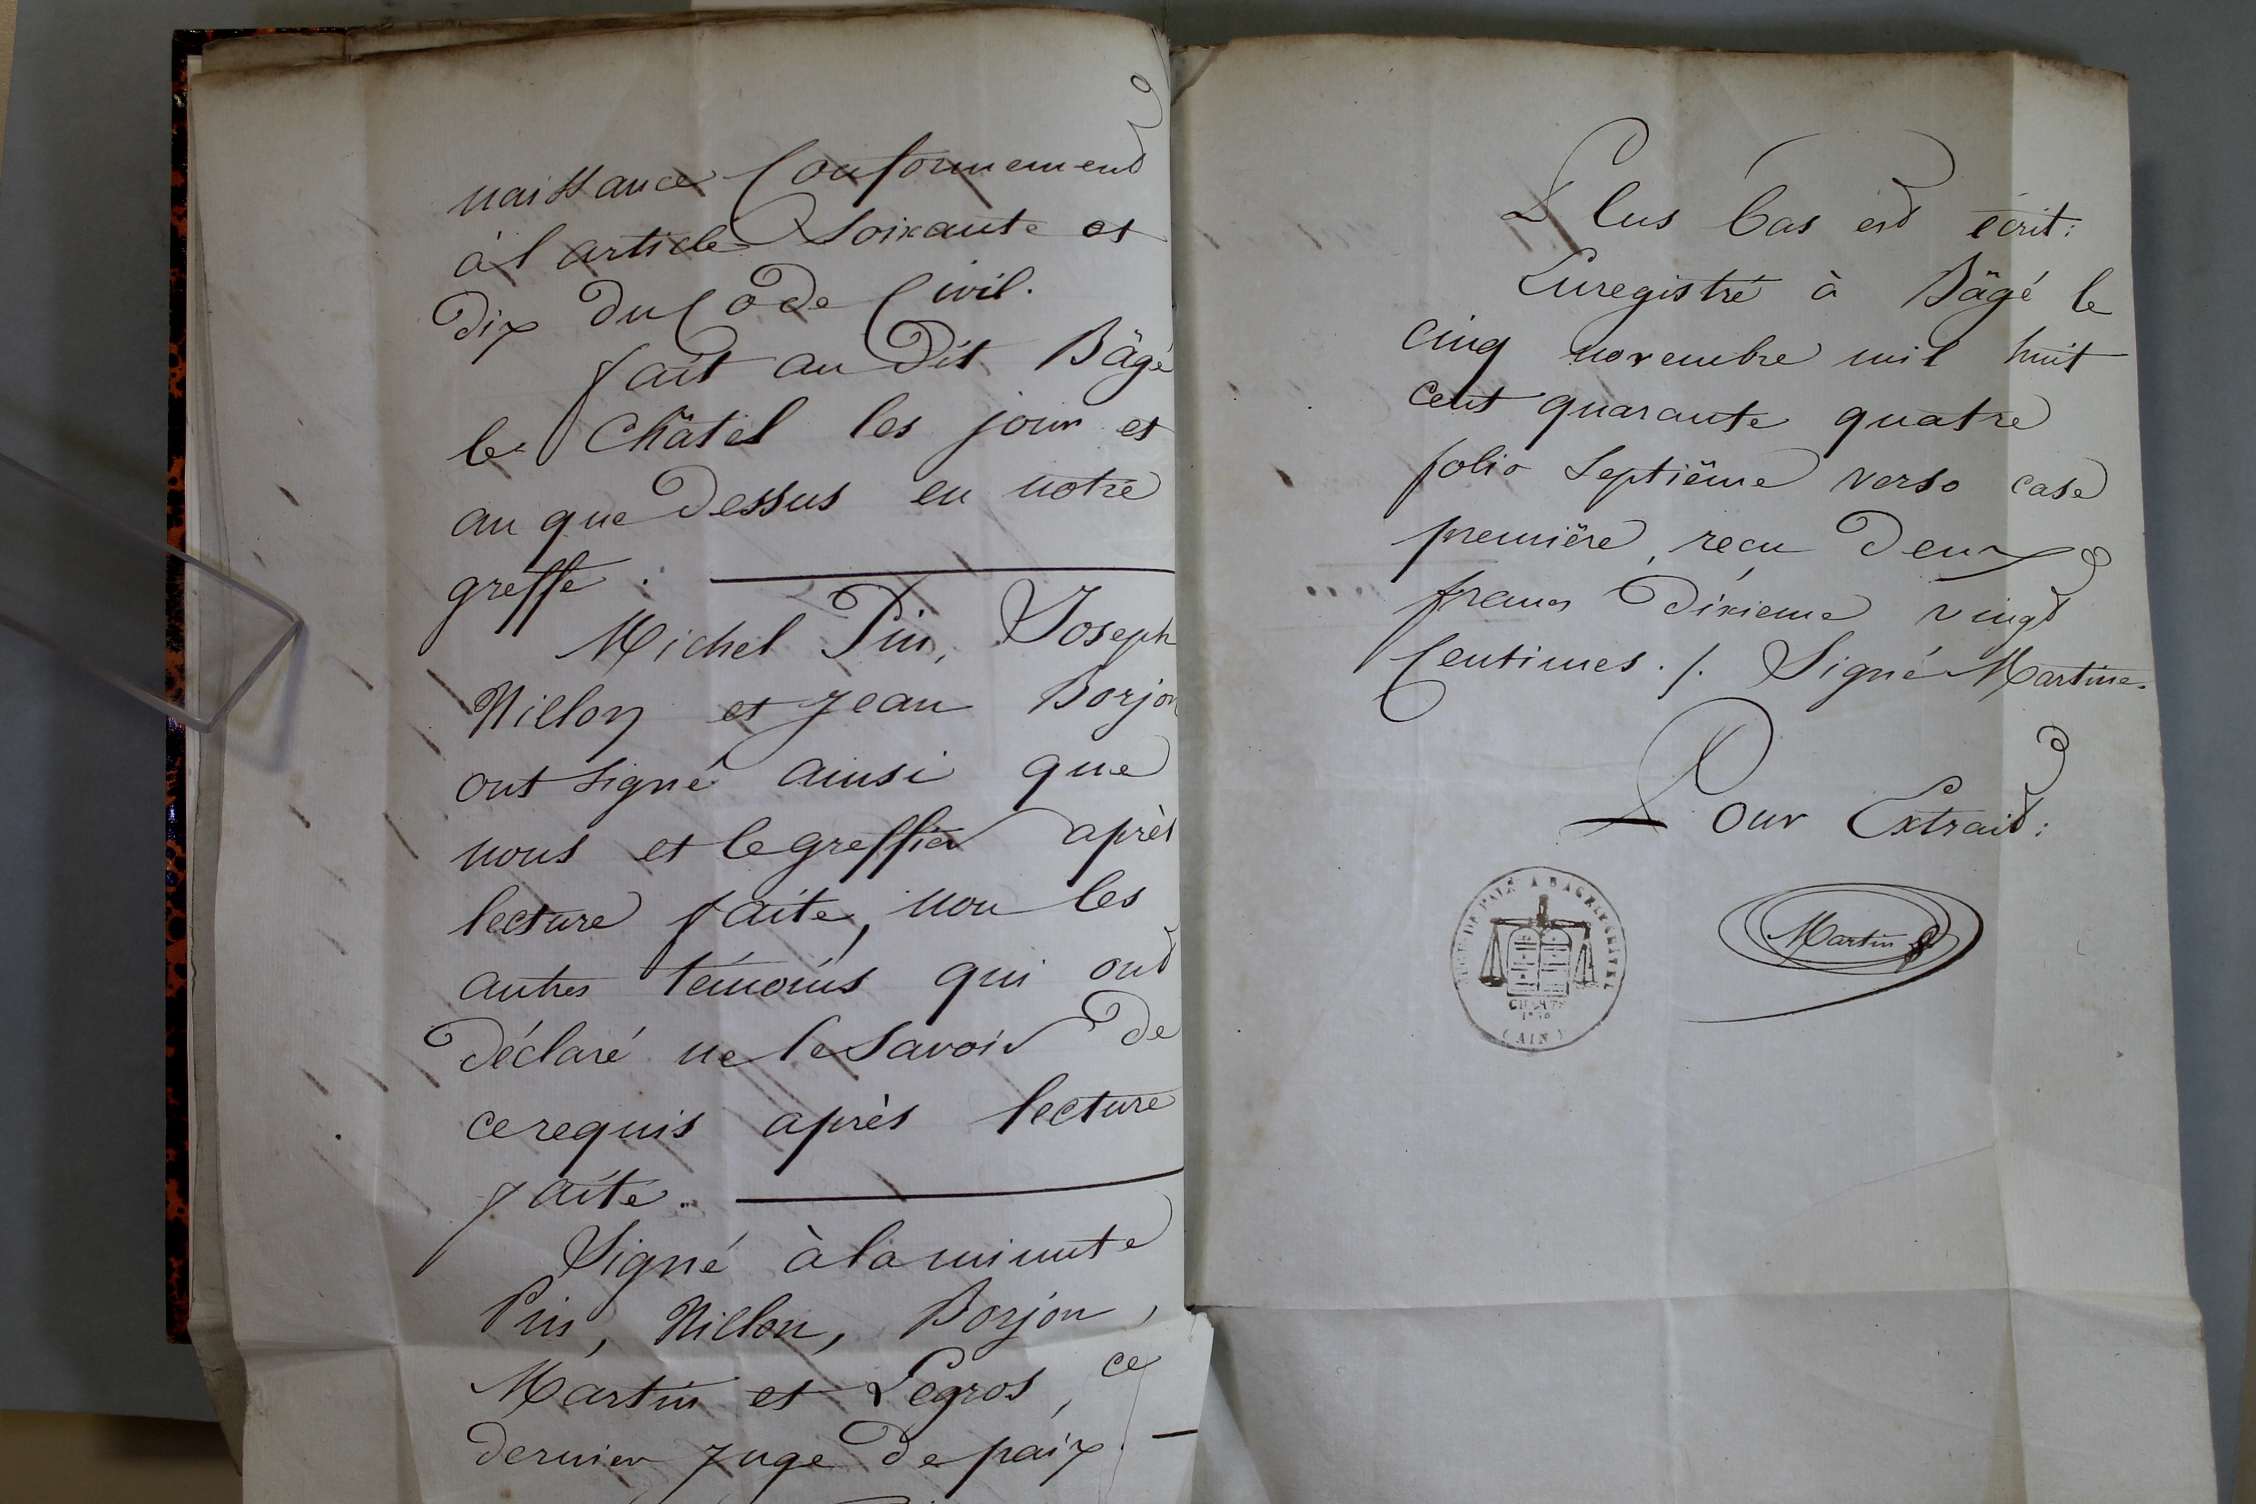 naissance Conformement
à l'article Soixante et
Dix Du Code Civil.
fait au Dit Bâgé
le Châtel les jour et
an que Dessus en notre
greffe.
Michel Pin, Joseph
Nillon et Jean Borjon
ont signé ainsi que
nous et le greffier après
lecture faite, non les
autres témoins qui ont
Déclaré ne le Savoir De
ce requis après lecture
faite.
Signé à la minute
Pin, Nillon, Borjon,
Martin et Legros, ce
dernier Juge De paix.
Plus bas est écrit:
Enregistré à Bâgé le
cinq novembre mil huit
cent quarante quatre
folio Septième verso case
première, reçu Deux
francs Dixieme vingt
Centimes. /. Signé Martine.
Pour Extrait:
Martin
DE PAIX A BAGE LE CHATEL
CHARTE
1830
(AIN)